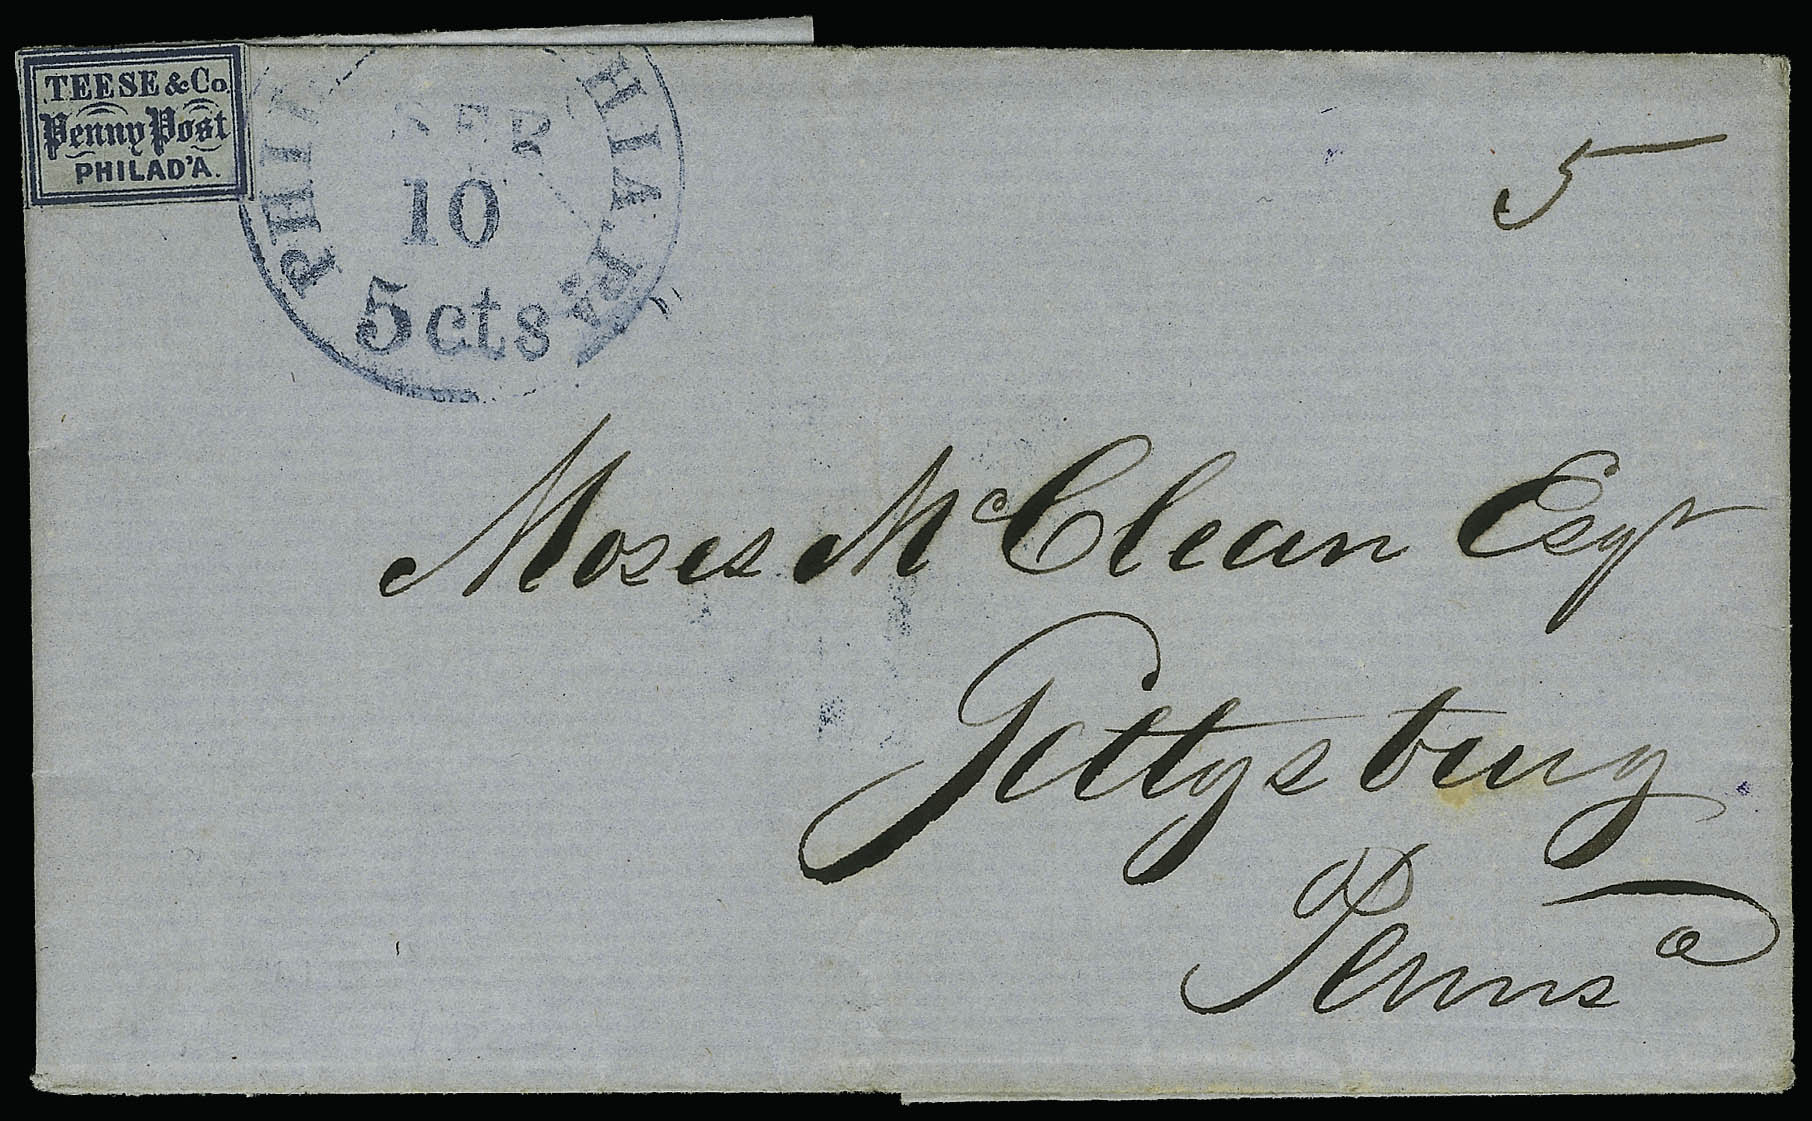 TEESE & Co.
Penny Post
PHILAD'A.
PHIL HIA. Pa.
SEP
10
5cts
5
Moses McClean Esqr
Gettysburg
Penns a